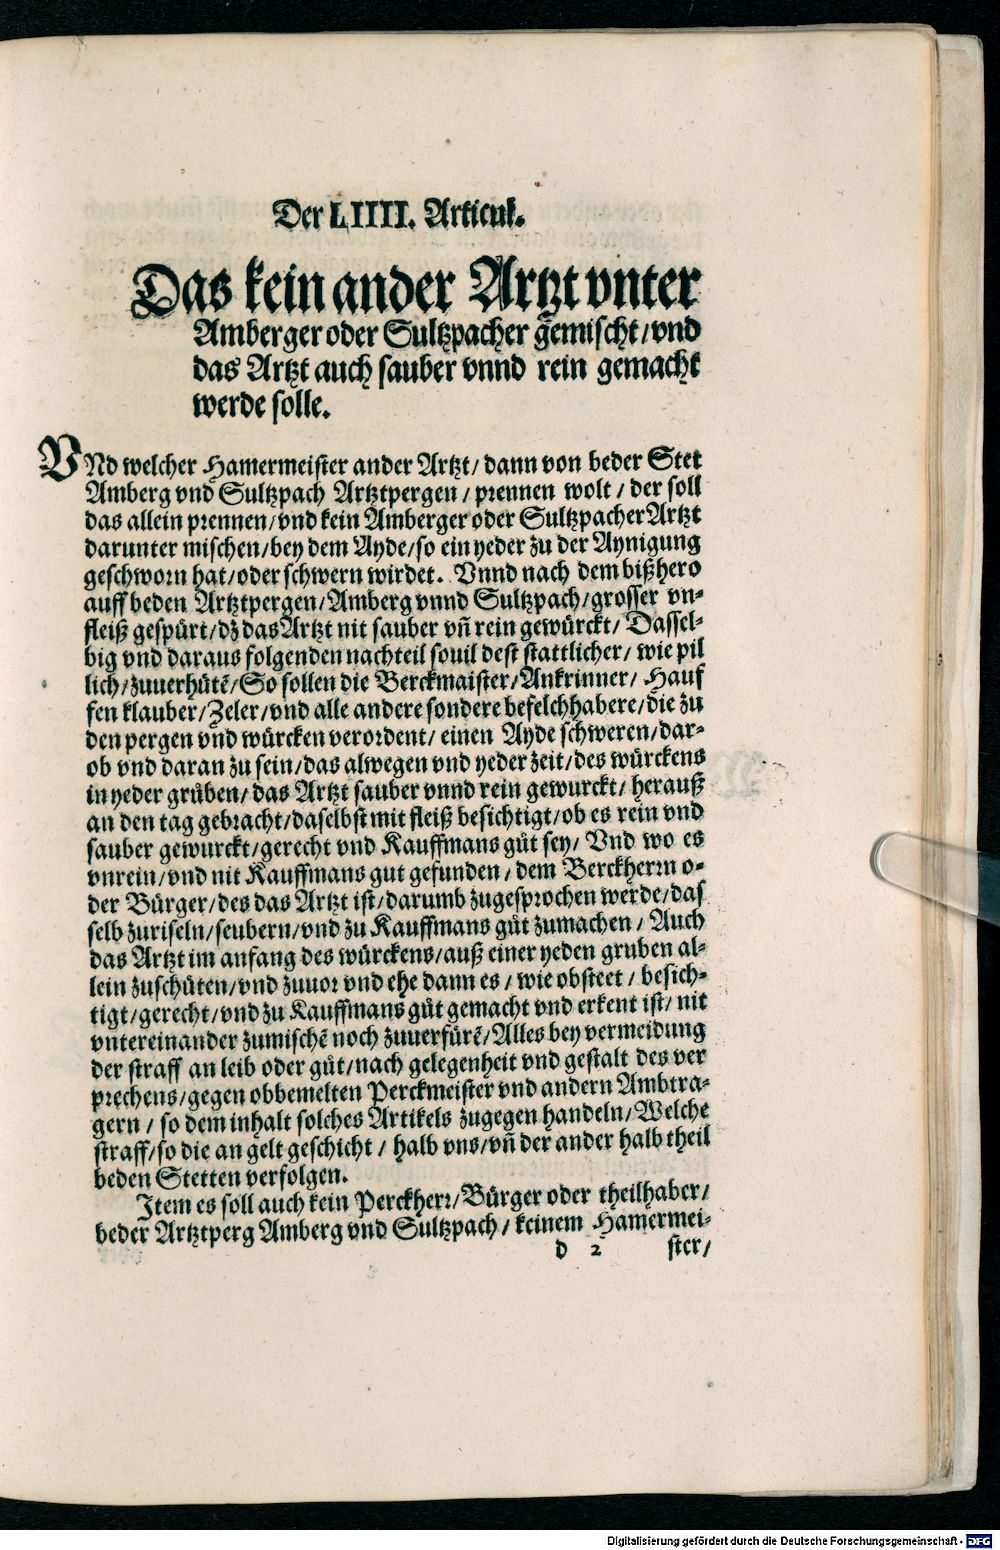 Der LIIII. Articul.
Das kein ander Artzt vnter
Amberger oder Sultzpacher gemischt/ vnd
das Artzt auch sauber vnnd rein gemacht
werde solle.
VNd welcher Hamermeister ander Artzt/ dann von beder Stet
Amberg vnd Sultzpach Artztpergen/ prennen wolt/ der soll
das allein prennen/ vnd kein Amberger oder Sultzpacher Artzt
darunter mischen/ bey dem Ayde/ so ein yeder zu der Aynigung
geschworn hat/ oder schwern wirdet. Vnnd nach dem bißhero
auff beden Artztpergen/ Amberg vnnd Sultzpach/ grosser vn-
fleiß gespürt/ dz das Artzt nit sauber vñ rein gewürckt/ Dassel-
big vnd daraus folgenden nachteil souil dest stattlicher/ wie pil
lich/ zuuerhütē/ So sollen die Berckmaister/ Ankrinner/ Hauf
fen klauber/ Zeler/ vnd alle andere sondere befelchhabere/ die zu
den pergen vnd würcken verordent/ einen Ayde schweren/ dar-
ob vnd daran zu sein/ das alwegen vnd yeder zeit/ des würckens
in yeder grůben/ das Artzt sauber vnnd rein gewurckt/ herauß
an den tag gebracht/ daselbst mit fleiß besichtigt/ ob es rein vnd
sauber gewurckt/ gerecht vnd Kauffmans gůt sey/ Vnd wo es
vnrein/ vnd nit Kauffmans gut gefunden/ dem Berckherrn o-
der Bürger/ des das Artzt ist/ darumb zugesprochen werde/ das
selb zuriseln/ seubern/ vnd zu Kauffmans gůt zumachen/ Auch
das Artzt im anfang des würckens/ auß einer yeden gruben al-
lein zuschüten/ vnd zuuor vnd ehe dann es/ wie obsteet/ besich-
tigt/ gerecht/ vnd zu Kauffmans gůt gemacht vnd erkent ist/ nit
vntereinander zumischē noch zuuerfürē/ Alles bey vermeidung
der straff an leib oder gůt/ nach gelegenheit vnd gestalt des ver
prechens/ gegen obbemelten Perckmeister vnd andern Ambtra-
gern/ so dem inhalt solches Artikels zugegen handeln/ Welche
straff/ so die an gelt geschicht/ halb vns/ vñ der ander halb theil
beden Stetten verfolgen.
Item es soll auch kein Perckherr/ Bürger oder theilhaber/
beder Artztperg Amberg vnd Sultzpach/ keinem Hamermei-
d 2 ster/
Digitalisierung gefördert durch die Deutsche Forschungsgemeinschaft - DFG